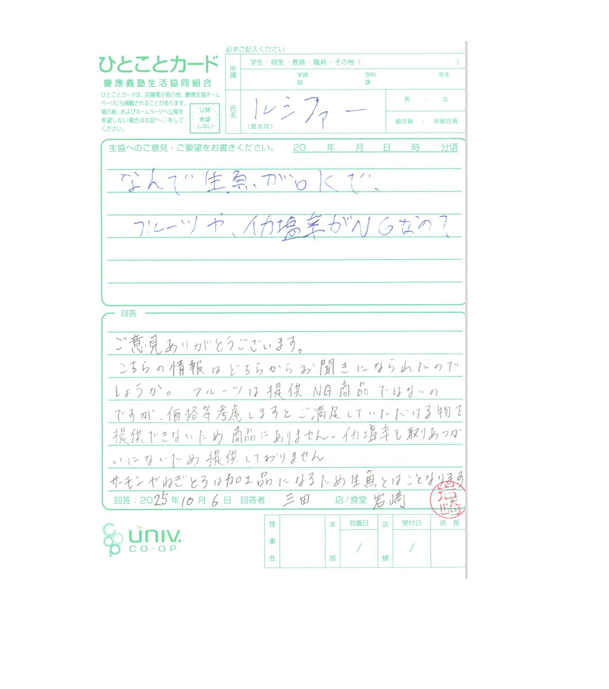 必ずご記入ください
ひとことカード
慶應義塾生活協同組合
ひとことカードは、店舗掲示板の他、慶應生協ホームページにも掲載されることがあります。
掲示板、およびホームページへ公開を希望しない場合は右記へ○をしてください。
公開 希望しない
所属
学生・院生・教員・職員・その他（　　）
学部 学科 年生
氏名
(匿名可)
ルシファー
男 ・ 女
組合員 ・ 非組合員
生協へのご意見・ご要望をお書きください。
20　年　月　日　時　分頃
なんで生魚がOKで、
フルーツや、イカ塩辛がNGなの？
回答
ご意見ありがとうございます。
こちらの情報はどちらからお聞きになられたので
しょうか。フルーツは提供NG商品ではないの
ですが、価格等考慮しますとご満足していただける物を
提供できないため商品にありません。イカ塩辛も取りあつか
いにないため提供しておりません
サーモンやねぎとろは加工品になるため生魚とはことなります
回答：2025年10月6日 回答者：三田 店/食堂 岩崎
岩崎
UNIV.
CO-OP
理事会
本部
到着日
/
店舗
受付日
/
店長